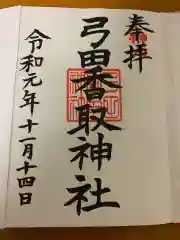 奉拝
弓田香取神社
令和元年十一月十四日